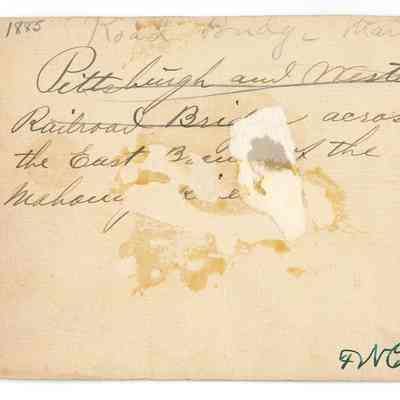 1885
Road Bridge
Pittsburgh and Weste
Railroad Bri acros
the East B of the
Mahon